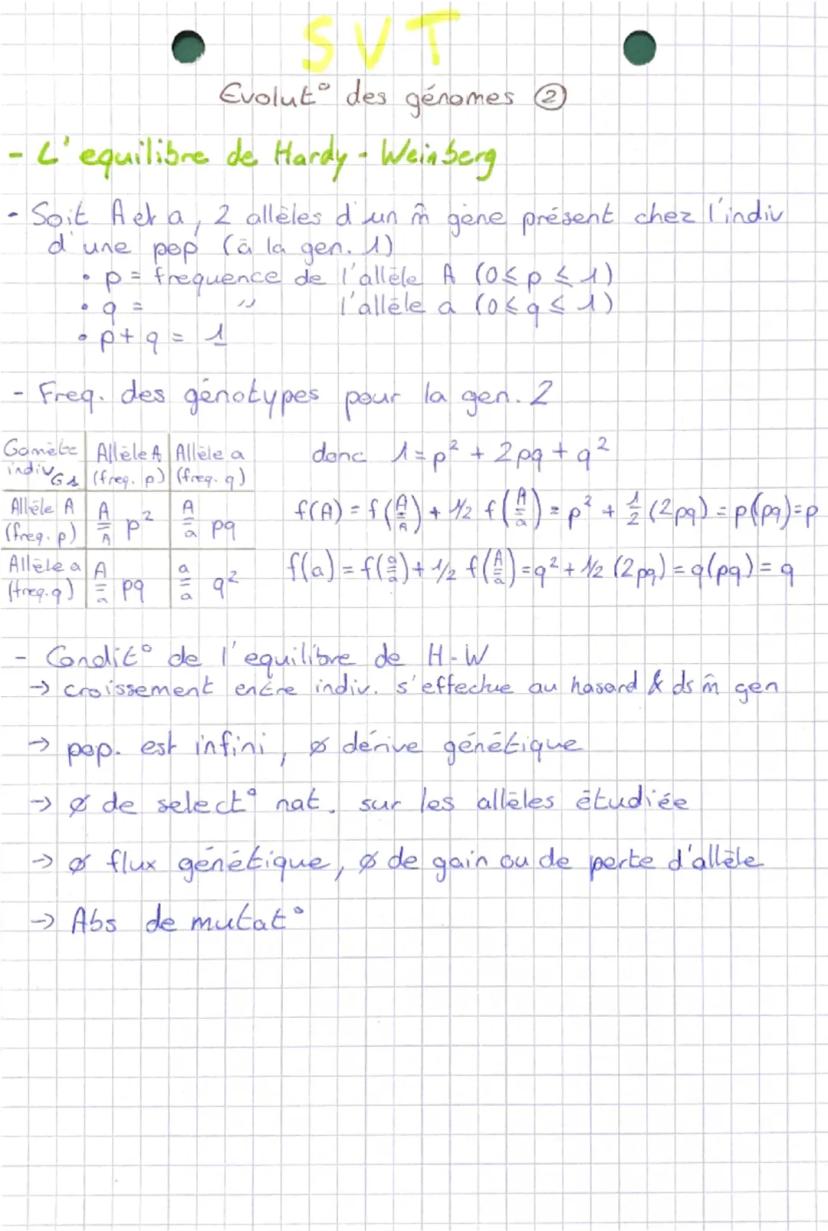 SVT
Evolut° des génomes ②
- L'equilibre de Hardy - Weinberg
- Soit A et a, 2 allèles d'un m̂ gène présent chez l'indiv
d'une pop (à la gen. 1)
• p = frequence de l'allèle A (0 ≤ p ≤ 1)
• q = " l'allèle a (0 ≤ q ≤ 1)
• p + q = 1
- Freq. des génotypes pour la gen. 2
Gamète Allèle A Allèle a
indiv G1 (freq. p) (freq. q)
donc 1 = p² + 2pq + q²
Allèle A A/A p² A/a pq
(freq. p)
f(A) = f(A/A) + 1/2 f(A/a) = p² + 1/2 (2pq) = p(pq) = p
Allèle a A/a pq a/a q²
(freq. q)
f(a) = f(a/a) + 1/2 f(A/a) = q² + 1/2 (2pq) = q(pq) = q
- Condit° de l'equilibre de H-W
→ croissement entre indiv. s'effectue au hasard & ds m̂ gen
→ pop. est infini, ø dérive génétique
→ ø de select° nat. sur les allèles étudiée
→ ø flux génétique, ø de gain ou de perte d'allèle
→ Abs de mutat°